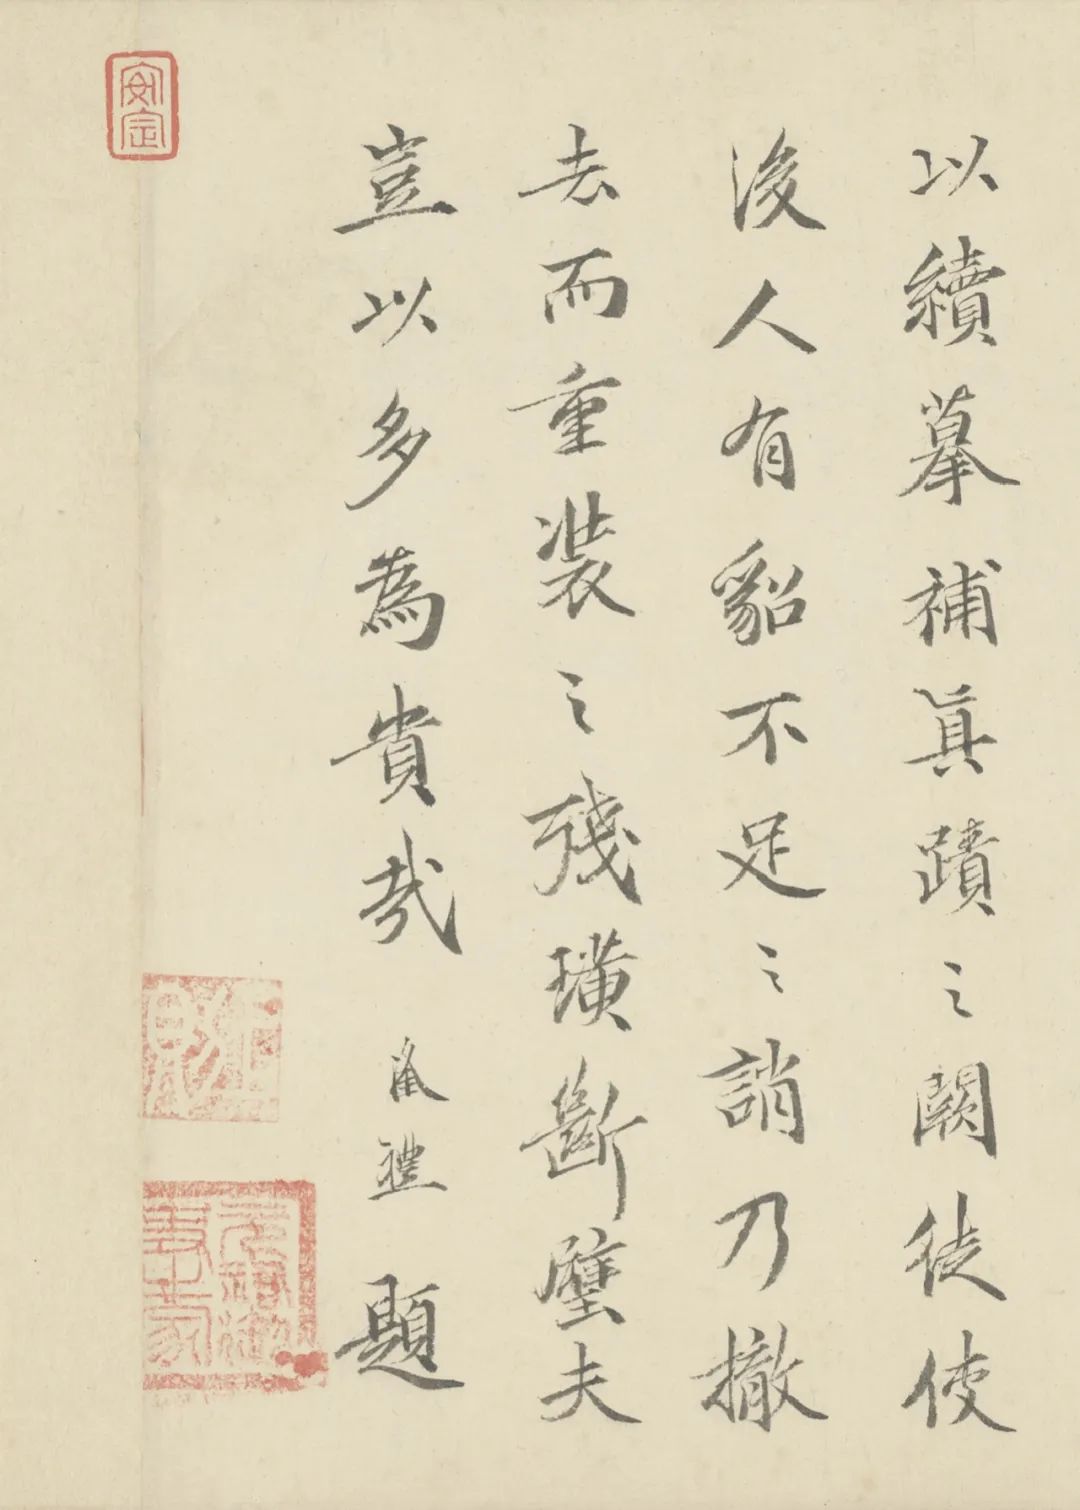 以續摹補真蹟之闕徒使
後人有貂不足之誚乃撤
去而重裝之殘璜斷璧夫
豈以多為貴哉 禮題
安定